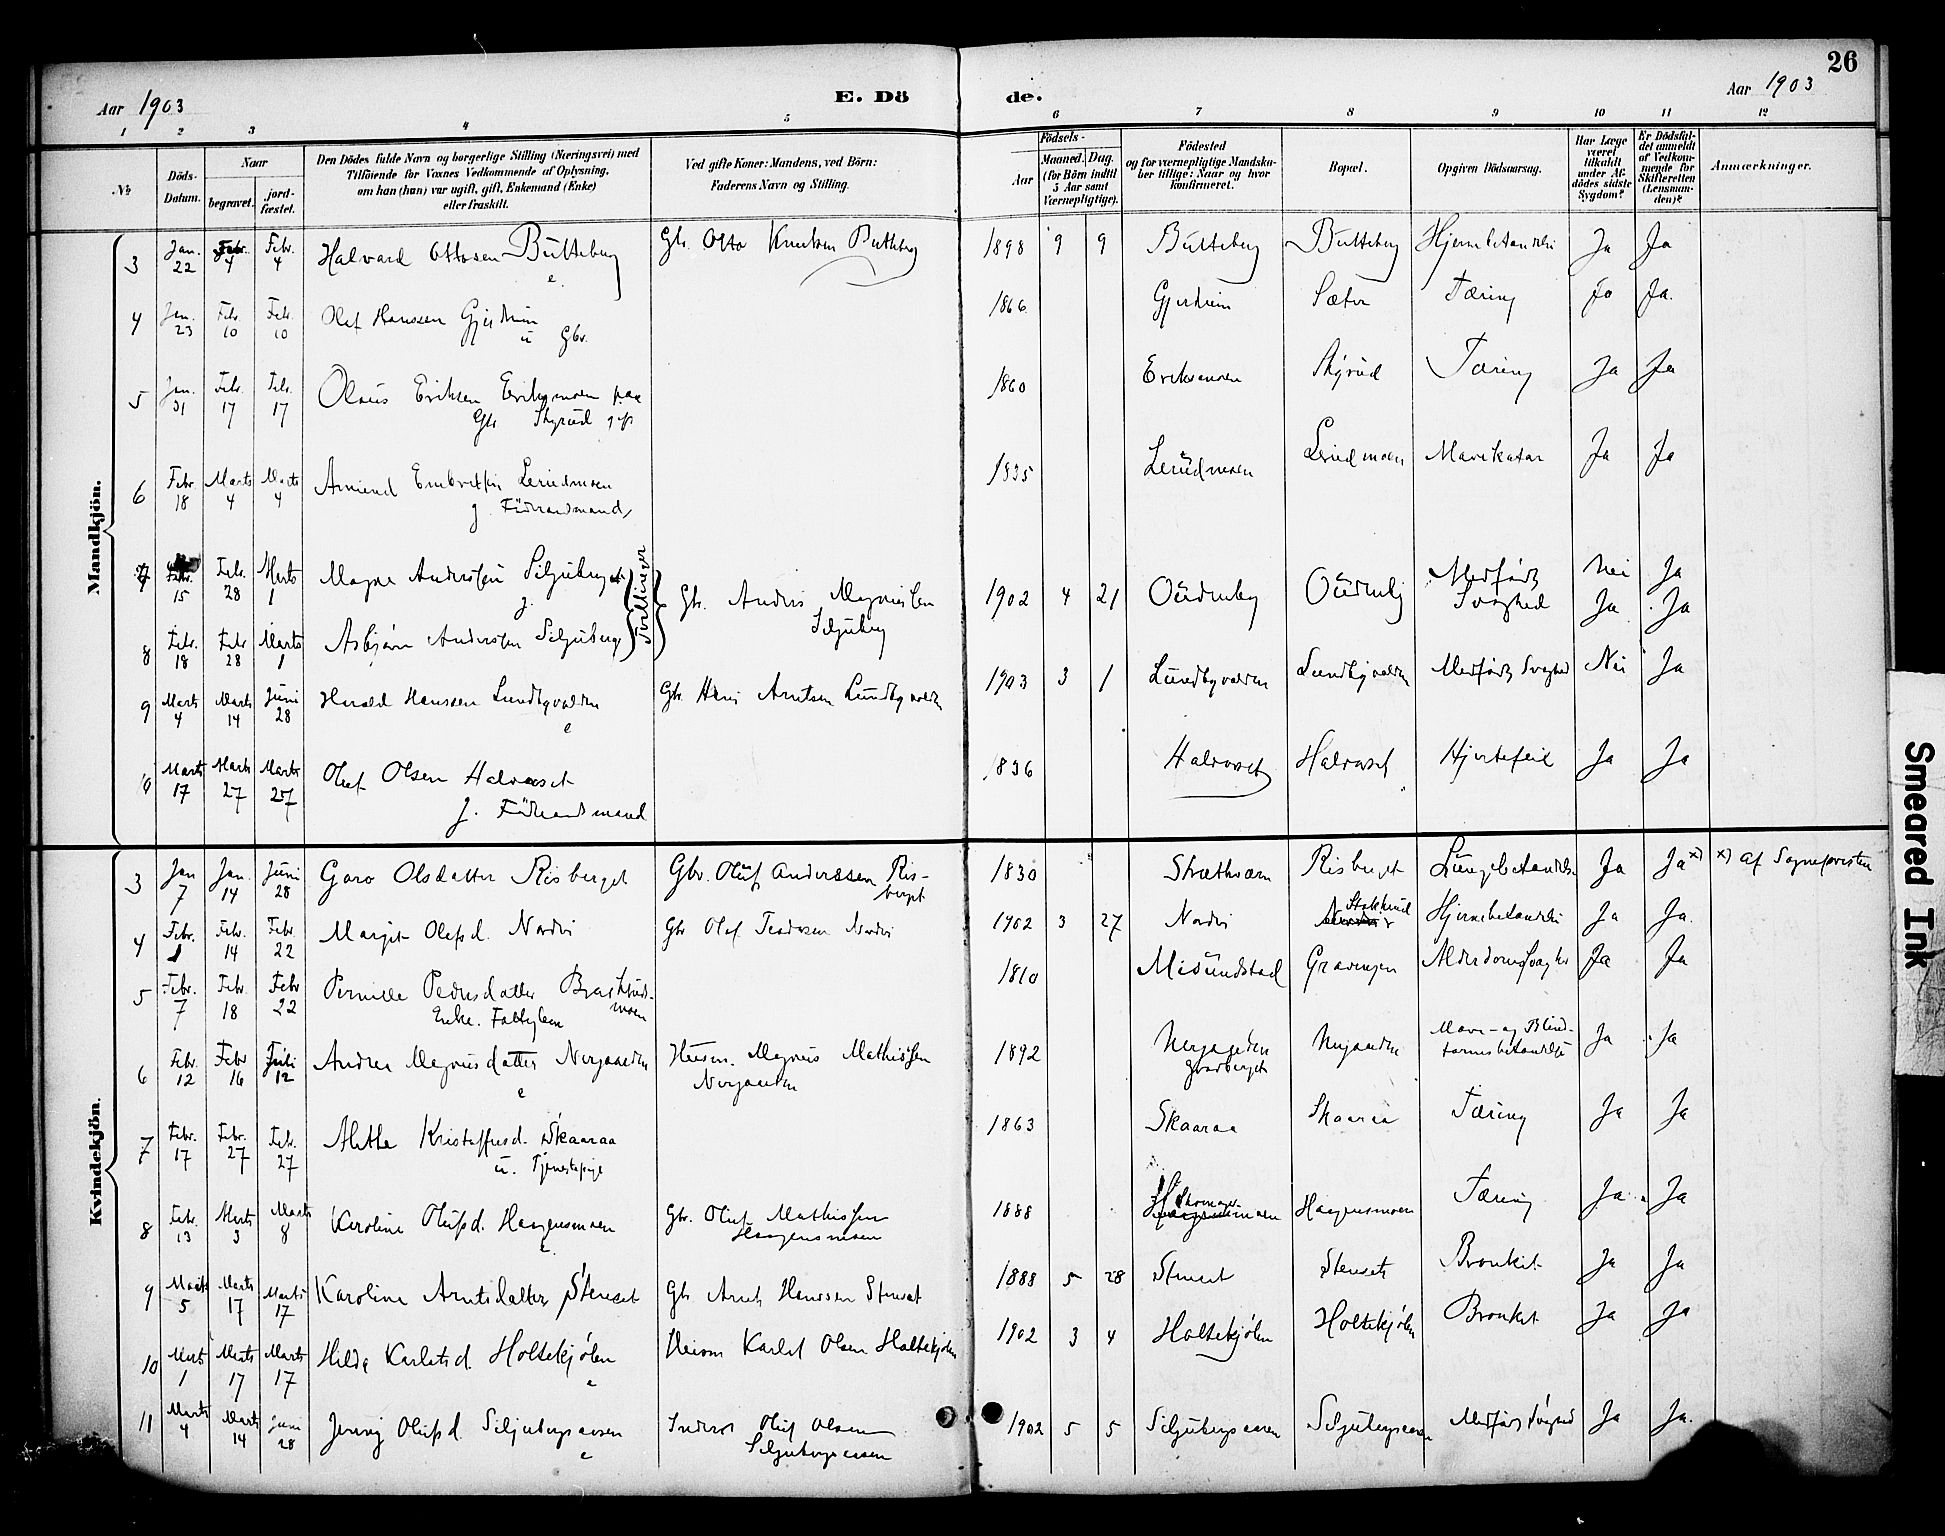 26
Aar 1903
E. Dö
de.
Aar 1903
1 2 3 4 5 6 7 8 9 10 11 12
No.
Döds-Datum.
Naar
begravet.
jord-fæstet.
Den Dödes fulde Navn og borgerlige Stilling (Næringsvei) med
Tilföiende for Voxnes Vedkommende af Oplysning,
om han (hun) var ugift, gift, Enkemand (Enke)
eller fraskilt.
Ved gifte Koner: Mandens, ved Börn:
Faderens Navn og Stilling.
Födsels-
Aar
Maaned. Dag.
(for Börn indtil
5 Aar samt
Værnepligtige).
Födested
og for værnepligtige Mandska-
ber tillige: Naar og hvor
konfirmeret.
Bopæl.
Opgiven Dödsaarsag.
Har Læge
været
tilkaldt
under Af-
dödes sidste
Sygdom?
Er Dödsfal-
det anmeldt
af Vedkom-
mende for
Skifteretten
(Lensman-
den)?
Anmærkninger.
Mandkjön.
3 Jan. 22 Febr. 4 Febr. 4 Halvard Ottosen Butteberg e. Gbr. Otto Knutsen Butteberg 1898 9 9 Butteberg Butteberg Hjernebetændelse Ja Ja
4 Jan. 23 Feb. 10 Feb. 10 Olaf Hanssen Gjerdrum u Gbr. 1866 Sæter Tæring Ja Ja.
5 Jan. 31 Feb. 17 Feb. 17 Olaus Eriksen Eriksmoen paa
Gbr Skyrud gift 1860 Eriksmoen Skyrud Tæring Ja Ja
6 Febr 18 Marts 4 Marts 4 Amund Embretsen Lerudmoen
g. Föderaadsmand 1835 Lerudmoen Lerudmoen Mavekatar Ja Ja
7 Febr. 15 Feb. 28 Marts 1 Magne Anderssen Siljuberget Tvillinger Gbr. Anders Magnussen
Siljuberg 1902 4 21 Medfödt Svaghed Nei Ja
8 Febr. 18 Febr 28 Marts 1 Asbjørn Anderssen Siljuberg Ja Ja
9 Marts 4 Marts 14 Juni 28 Harald Hanssen Lundbyvalden e Gbr. Hans Arntsen Lundbyvalden 1903 3 1 Lundbyvalden Lundbyvalden Medfödt Svaghed Nei Ja
10 Marts 17 Marts 27 Marts 27 Olaf Olsen Halvorset
g. Föderaadsmand 1836 Halvorset Halvorset Hjertefeil Ja Ja
Kvindekjön.
3 Jan 7 Jan. 14 Juni 28 Goro Olsdatter Risberget Gbr. Oluf Anderssen Ris-
berget 1830 Risberget Lungebetændelse Ja Ja x) x) af Sognepresten
4 Febr. 1 Feb. 14 Febr. 22 Margit Olafsd. Nordvi Gbr Olaf Nordvi 1902 3 27 Nordvi Hjernebetændelse Ja Ja.
5 Febr. 7 Febr. 18 Febr 22 Pernille Pedersdatter
moen
Enke. Fattiglem 1810 Misundstad Gravengen Alderdomssvaghed Ja Ja
6 Febr. 12 Febr 16 Juli 12 Andrea Magnusdatter Nergaarden e Husm. Magnus Mathissen
Nergaarden 1892 Nergaarden Nergaarden Mave- og Blind-
tarmsbetændelse Ja Ja
7 Febr. 17 Febr. 27 Feb. 27 Alette Kristoffersd. Skaaraa
u. Tjenestepige 1863 Skaaraa Skaaraa Tæring Ja Ja
8 Feb. 13 Marts 3 Marts 8 Karoline Olufsd. Haagensmoen e. Gbr. Oluf Mathissen
Haagensmoen 1888 Haagensmoen Tæring Ja Ja
9 Marts 5 Marts 17 Marts 17 Karoline Arntsdatter Stenset Gbr Arnt Hanssen Stenset 1888 5 28 Stenset Stenset Bronkit Ja Ja
10 Marts 1 Marts 17 Marts 17 Hilda Karlotsd. Holtekjølen e Karlot Olsen Holtekjølen 1902 3 4 Holtekjølen Holtekjølen Bronkit Ja Ja
11 Marts 4 Marts 14 Juni 28 Jenny Olufsd. Siljubergsaasen e Inderst Oluf Olsen
Siljubergsaasen 1902 5 5 Siljubergsaasen Siljubergsaasen Medfödt Svaghed Ja Ja.
Smeared Ink